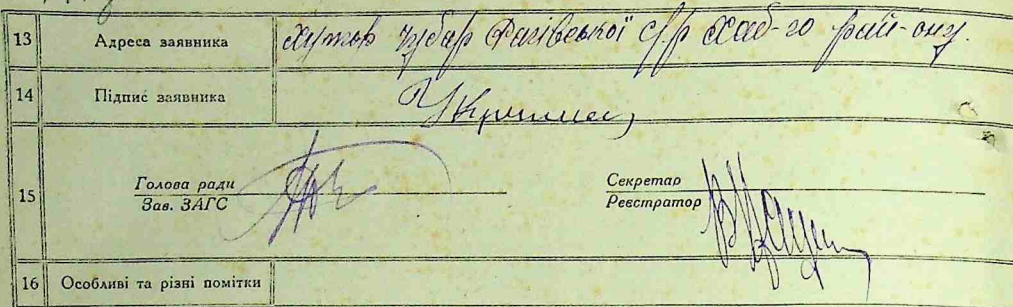 13 Адреса заявника хутор Чубар Фасівської с/р Хаб-го рай-ону.
14 Підпис заявника
15 Голова ради Секретар
Зав. ЗАГС Реєстратор
16 Особливі та різні помітки